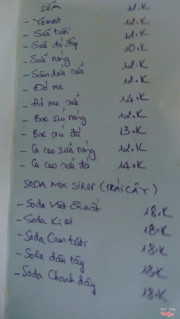 SỮA 12.K
- Yaourt 12.K
- Sữa tươi 12.K
- Sữa đá đập 10.K
- Sữa nóng 12.K
- Siêm dừa sữa 12.K
- Đá me 12.K
- Đá me sữa 14.K
- Bạc sỉu nóng 12.K
- Bạc sỉu đá 13.K
- Ca cao sữa nóng 12.K
- Ca cao sữa đá 14.K
SODA MIX SIRUP (TRÁI CÂY)
- Soda Việt Quất 18.K
- Soda Kiwi 18.K
- Soda Cam tươi 18.K
- Soda dâu tây 18.K
- Soda Chanh dây 18.K